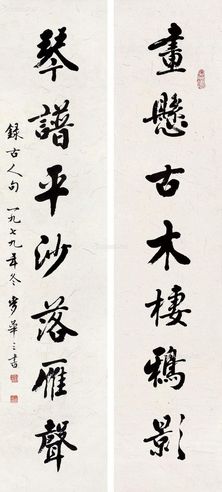 畫懸古木棲鴉影
琴譜平沙落雁聲
錄古人句一九七九年冬步華之書